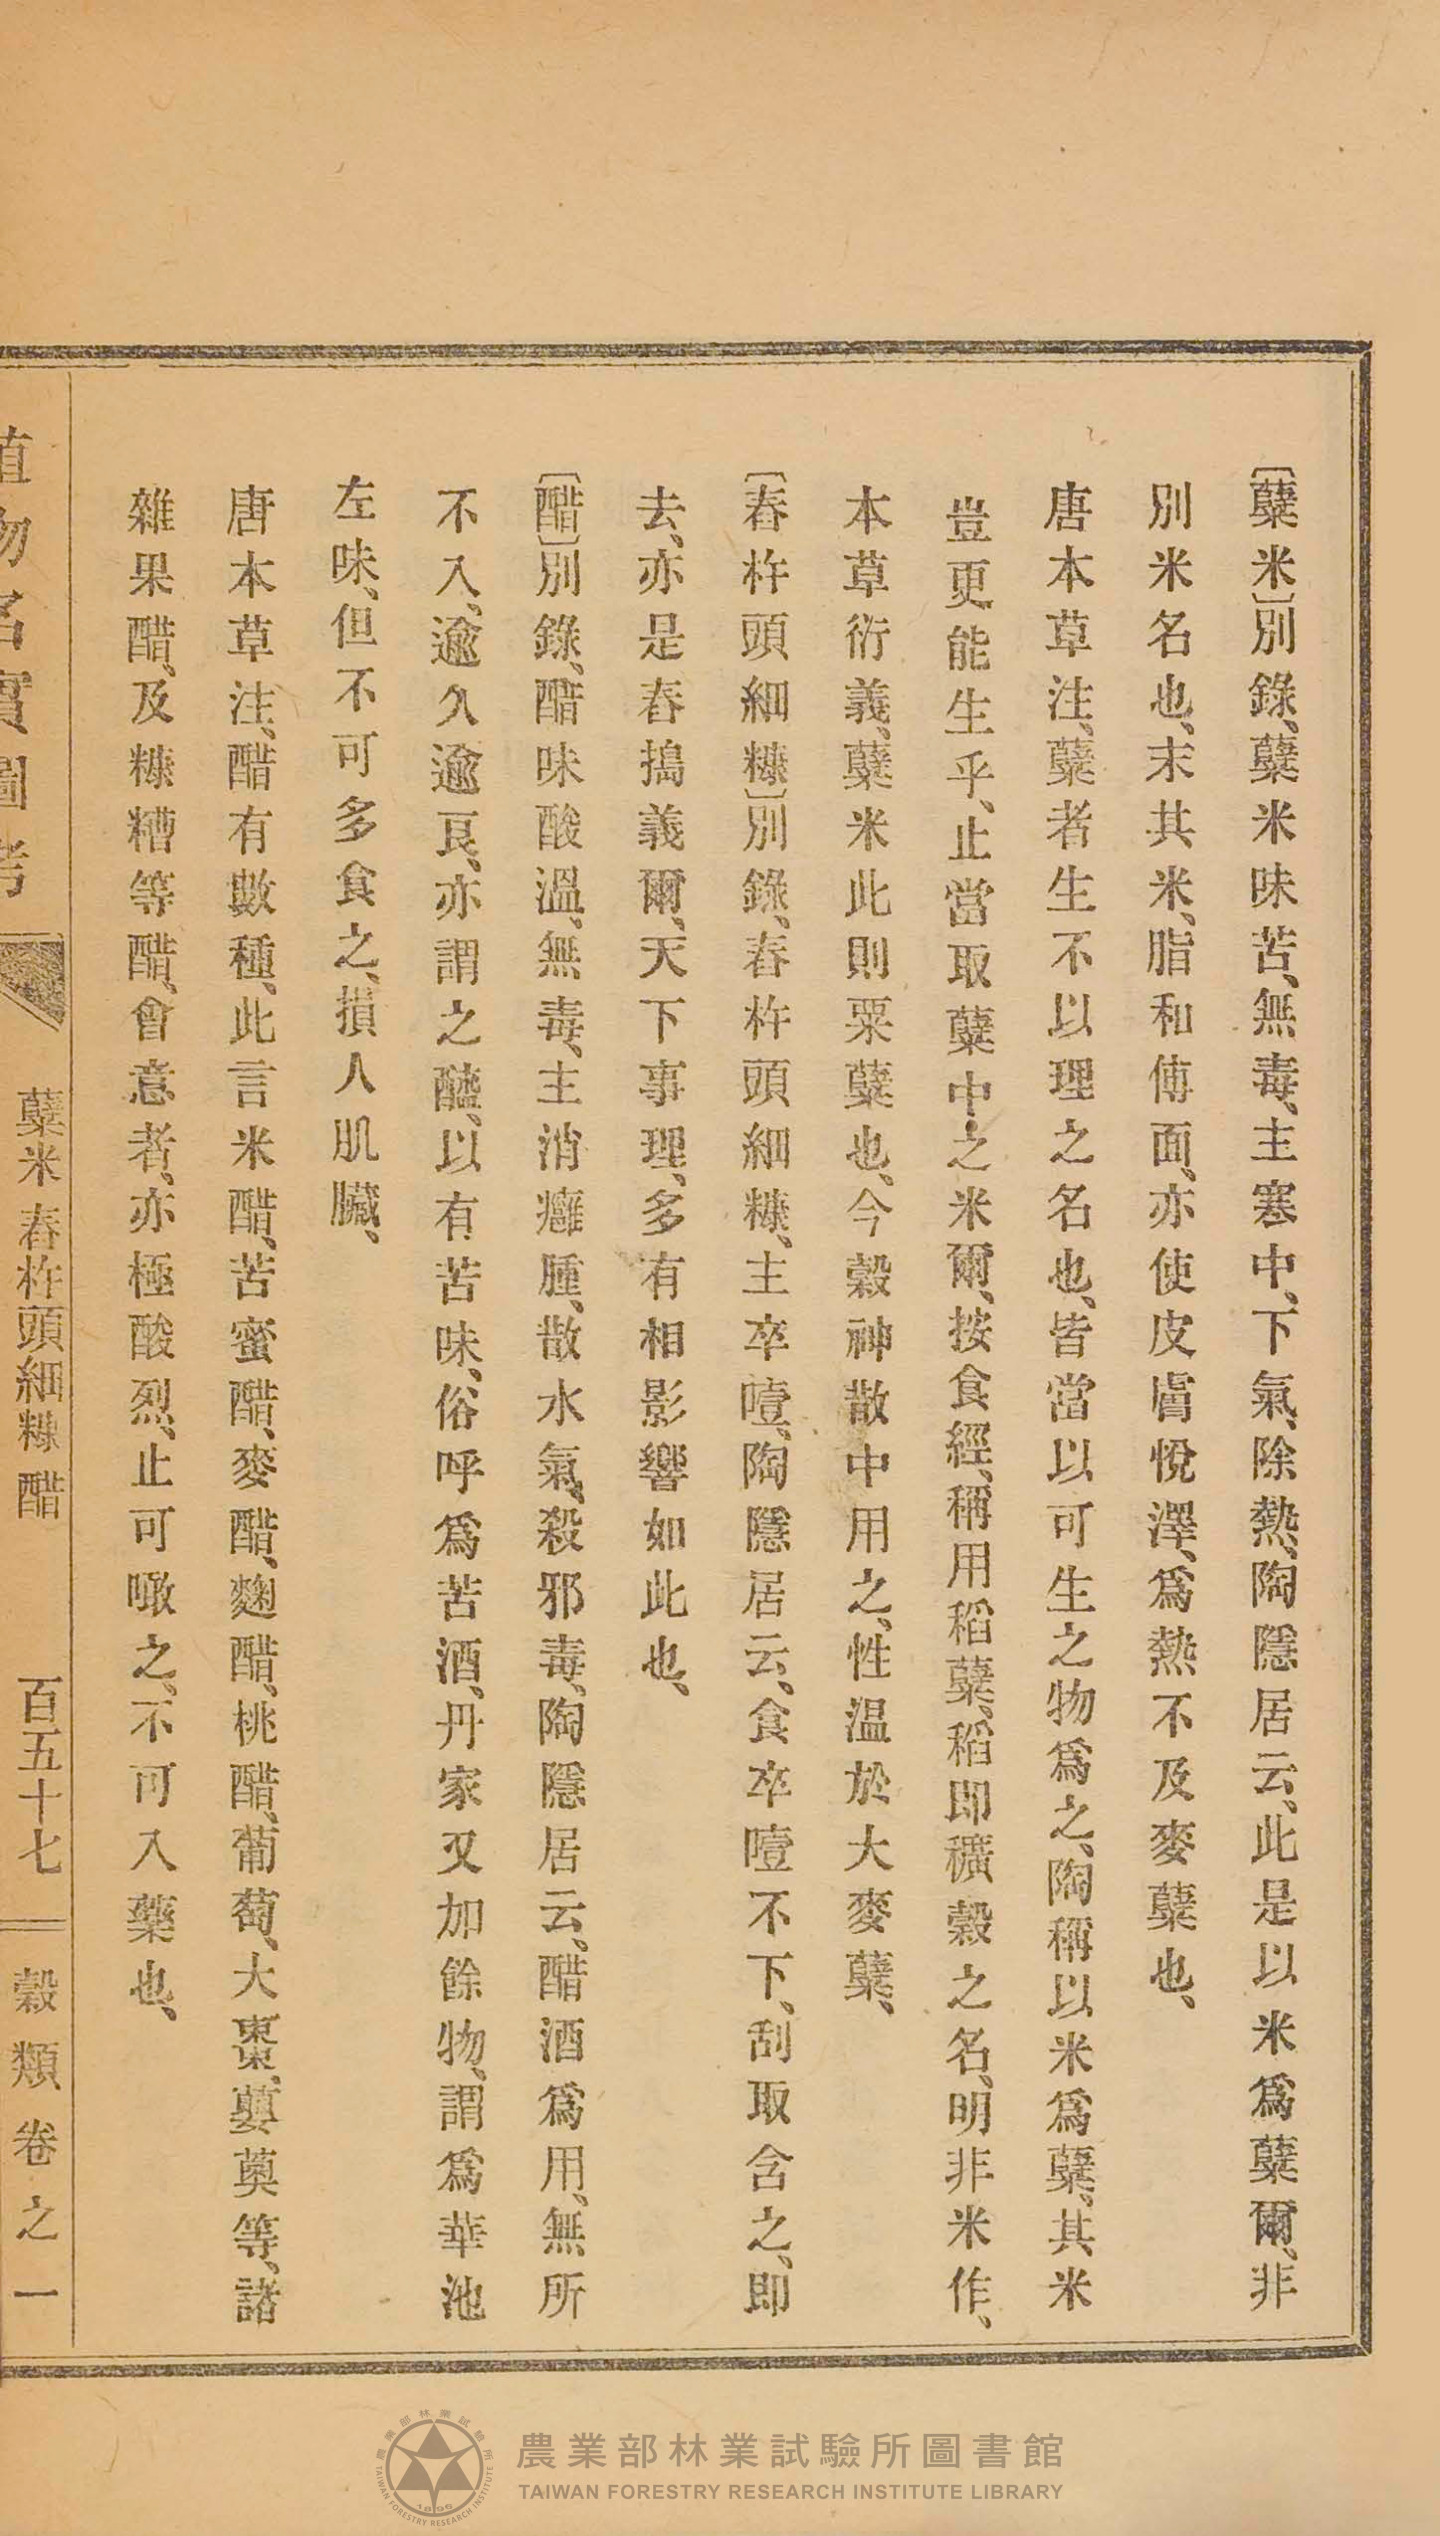 〔櫱米〕別錄、櫱米味苦、無毒、主寒中、下氣、除熱、陶隱居云、此是以米爲櫱爾、非
別米名也、末其米、脂和傅面、亦使皮膚悅澤、爲熱不及麥櫱也、
唐本草注、櫱者生不以理之名也、皆當以可生之物爲之、陶稱以米爲櫱、其米
豈更能生乎、止當取櫱中之米爾、按食經、稱用稻櫱、稻即穬穀之名、明非米作、
本草衍義、櫱米此則粟櫱也、今穀神散中用之、性溫於大麥櫱、
〔舂杵頭細糠〕別錄、舂杵頭細糠、主卒噎、陶隱居云、食卒噎不下、刮取含之、即
去、亦是舂搗義爾、天下事理、多有相影響如此也、
〔醋〕別錄、醋味酸溫、無毒、主消癰腫、散水氣、殺邪毒、陶隱居云、醋酒爲用、無所
不入、逾久逾良、亦謂之醯、以有苦味、俗呼爲苦酒、丹家又加餘物、謂爲華池
左味、但不可多食之、損人肌臟、
唐本草注、醋有數種、此言米醋、苦蜜醋、麥醋、麴醋、桃醋、葡萄、大棗、蘡薁等、諸
雜果醋、及糠糟等醋、會意者、亦極酸烈、止可噉之、不可入藥也、
植物名實圖考
櫱米 舂杵頭細糠 醋
百五十七
穀類卷之一
農業部林業試驗所圖書館
TAIWAN FORESTRY RESEARCH INSTITUTE LIBRARY
農業部林業試驗所
TAIWAN FORESTRY RESEARCH INSTITUTE
1895